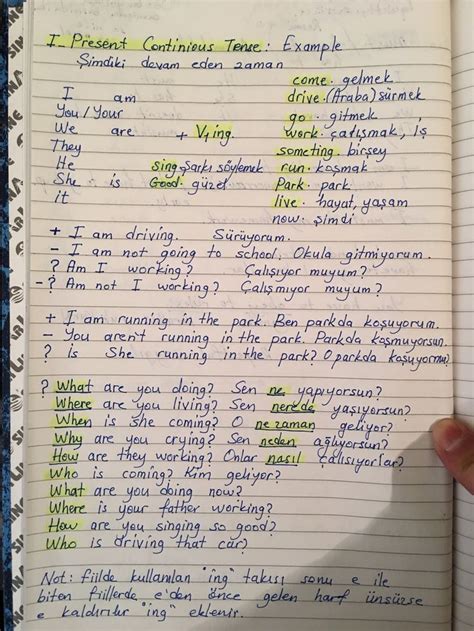 I_ Present Continious Tense: Example
Şimdiki devam eden zaman
come. gelmek
I am drive. (Araba) sürmek
You / Your go. gitmek
We are + V1 ing. work. çalışmak, iş
They someting. birşey
He sing. Şarkı söylemek run. koşmak
She is Good. güzel Park. park
it live. hayat, yaşam
now. şimdi
+ I am driving. Sürüyorum.
- I am not going to school. Okula gitmiyorum.
? Am I working? Çalışıyor muyum?
-? Am not I working? Çalışmıyor muyum?
+ I am running in the park. Ben parkda koşuyorum.
- You aren't running in the park. Parkda koşmuyorsun.
? is She running in the park? O parkda koşuyormu?
? What are you doing? Sen ne yapıyorsun?
Where are you living? Sen nerede yaşıyorsun?
When is she coming? O ne zaman geliyor?
Why are you crying? Sen neden ağlıyorsun?
How are they working? Onlar nasıl çalışıyorlar?
Who is coming? Kim geliyor?
What are you doing now?
Where is your father working?
How are you singing so good?
Who is driving that car?
Not: fiilde kullanılan "ing" takısı sonu e ile
biten fiillerde e'den önce gelen harf ünsüzse
e kaldırılır "ing" eklenir.